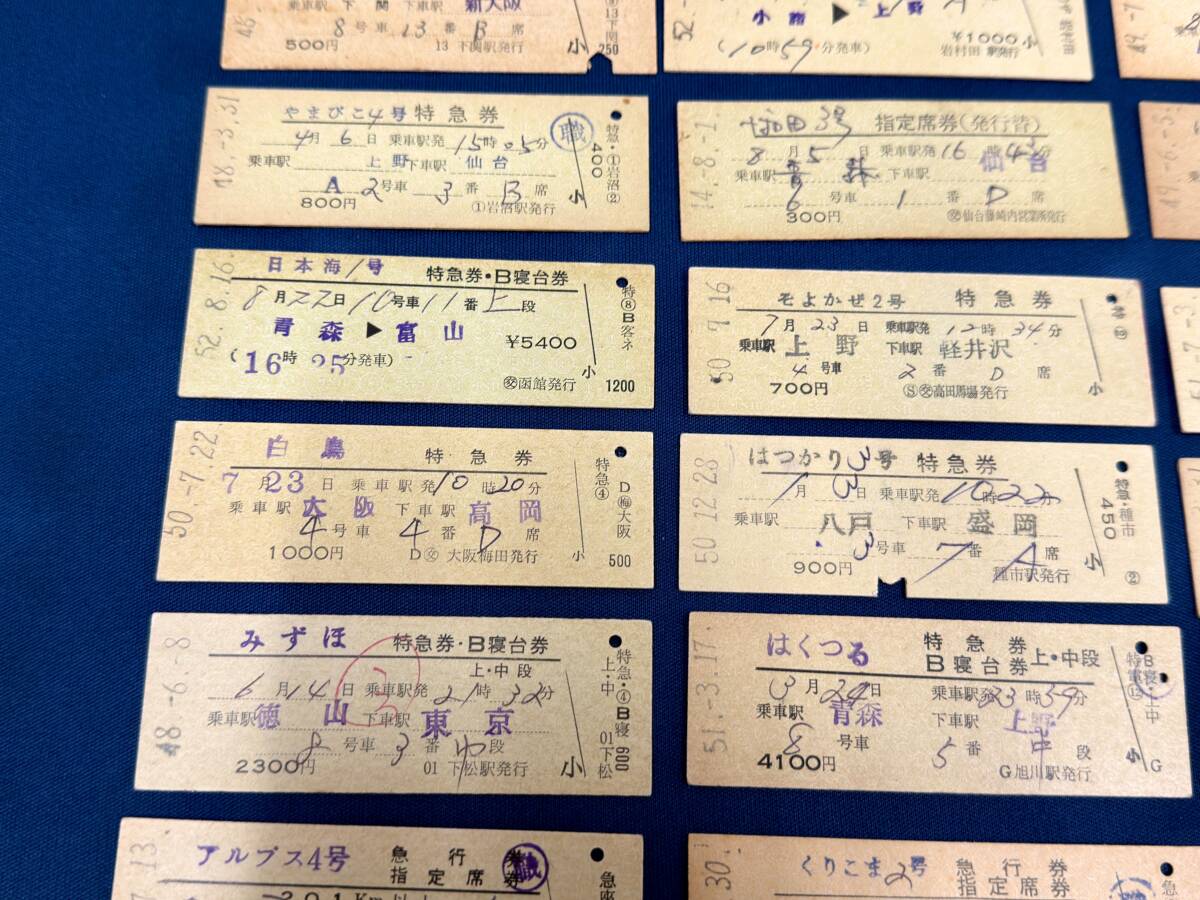 乗車駅 下関 下車駅 新大阪
8号車 13番 B席
500円 13 下関駅発行
小
250
13下関
小諸 ▶ 上野
(10時59分発車)
¥1000
岩村田 駅発行
小
岩村田
52.
49.-7
48.-3.31
やまびこ4号 特急券
職
4月6日 乗車駅発 15時05分
乗車駅 上野 下車駅 仙台
A 2号車 3番 B席
800円 ①岩沼駅発行
小
特急・①岩沼②
400
指定席券(発行替)
3号
8月5日 乗車駅発 16時43分
乗車駅 青森 下車駅 仙台
6号車 1番 D席
300円 ㊋仙台藤崎内営業所発行
14.-8.-1.
49.-6.-5.
52.8.16.
日本海1号 特急券・B寝台券
8月22日 10号車 11番 上段
青森 ▶ 富山
¥5400
(16時25分発車)
交函館発行
小
特⑧B客ネ
1200
50.-7.16
そよかぜ2号 特急券
7月23日 乗車駅発 12時34分
乗車駅 上野 下車駅 軽井沢
4号車 2番 D席
700円 Ⓢ交高田馬場発行
小
50.-7.22.
白鳥 特急券
7月23日 乗車駅発 10時20分
乗車駅 大阪 下車駅 高岡
4号車 4番 D席
1000円 D交 大阪梅田発行
小
特急④
D梅大阪
500
50.12.28
はつかり3号 特急券
1月3日 乗車駅発 10時22分
乗車駅 八戸 下車駅 盛岡
3号車 7番 A席
900円 種市駅発行
小
特急・種市
450
②
48.-6.-8
みずほ 特急券・B寝台券
上・中段
6月14日 乗車駅発 21時32分
乗車駅 徳山 下車駅 東京
8号車 3番 中段
2300円 01 下松駅発行
小
特急・④B寝
上・中
600
01下松
51.-3.17.
はくつる 特急券 B寝台券 上・中段
3月24日 乗車駅発 23時39分
乗車駅 青森 下車駅 上野
8号車 5番 中段
4100円 G旭川駅発行
小
G
13.
アルプス4号 急行券
指定席券
職
201Km
30.
くりこま2号 急行券
指定席券